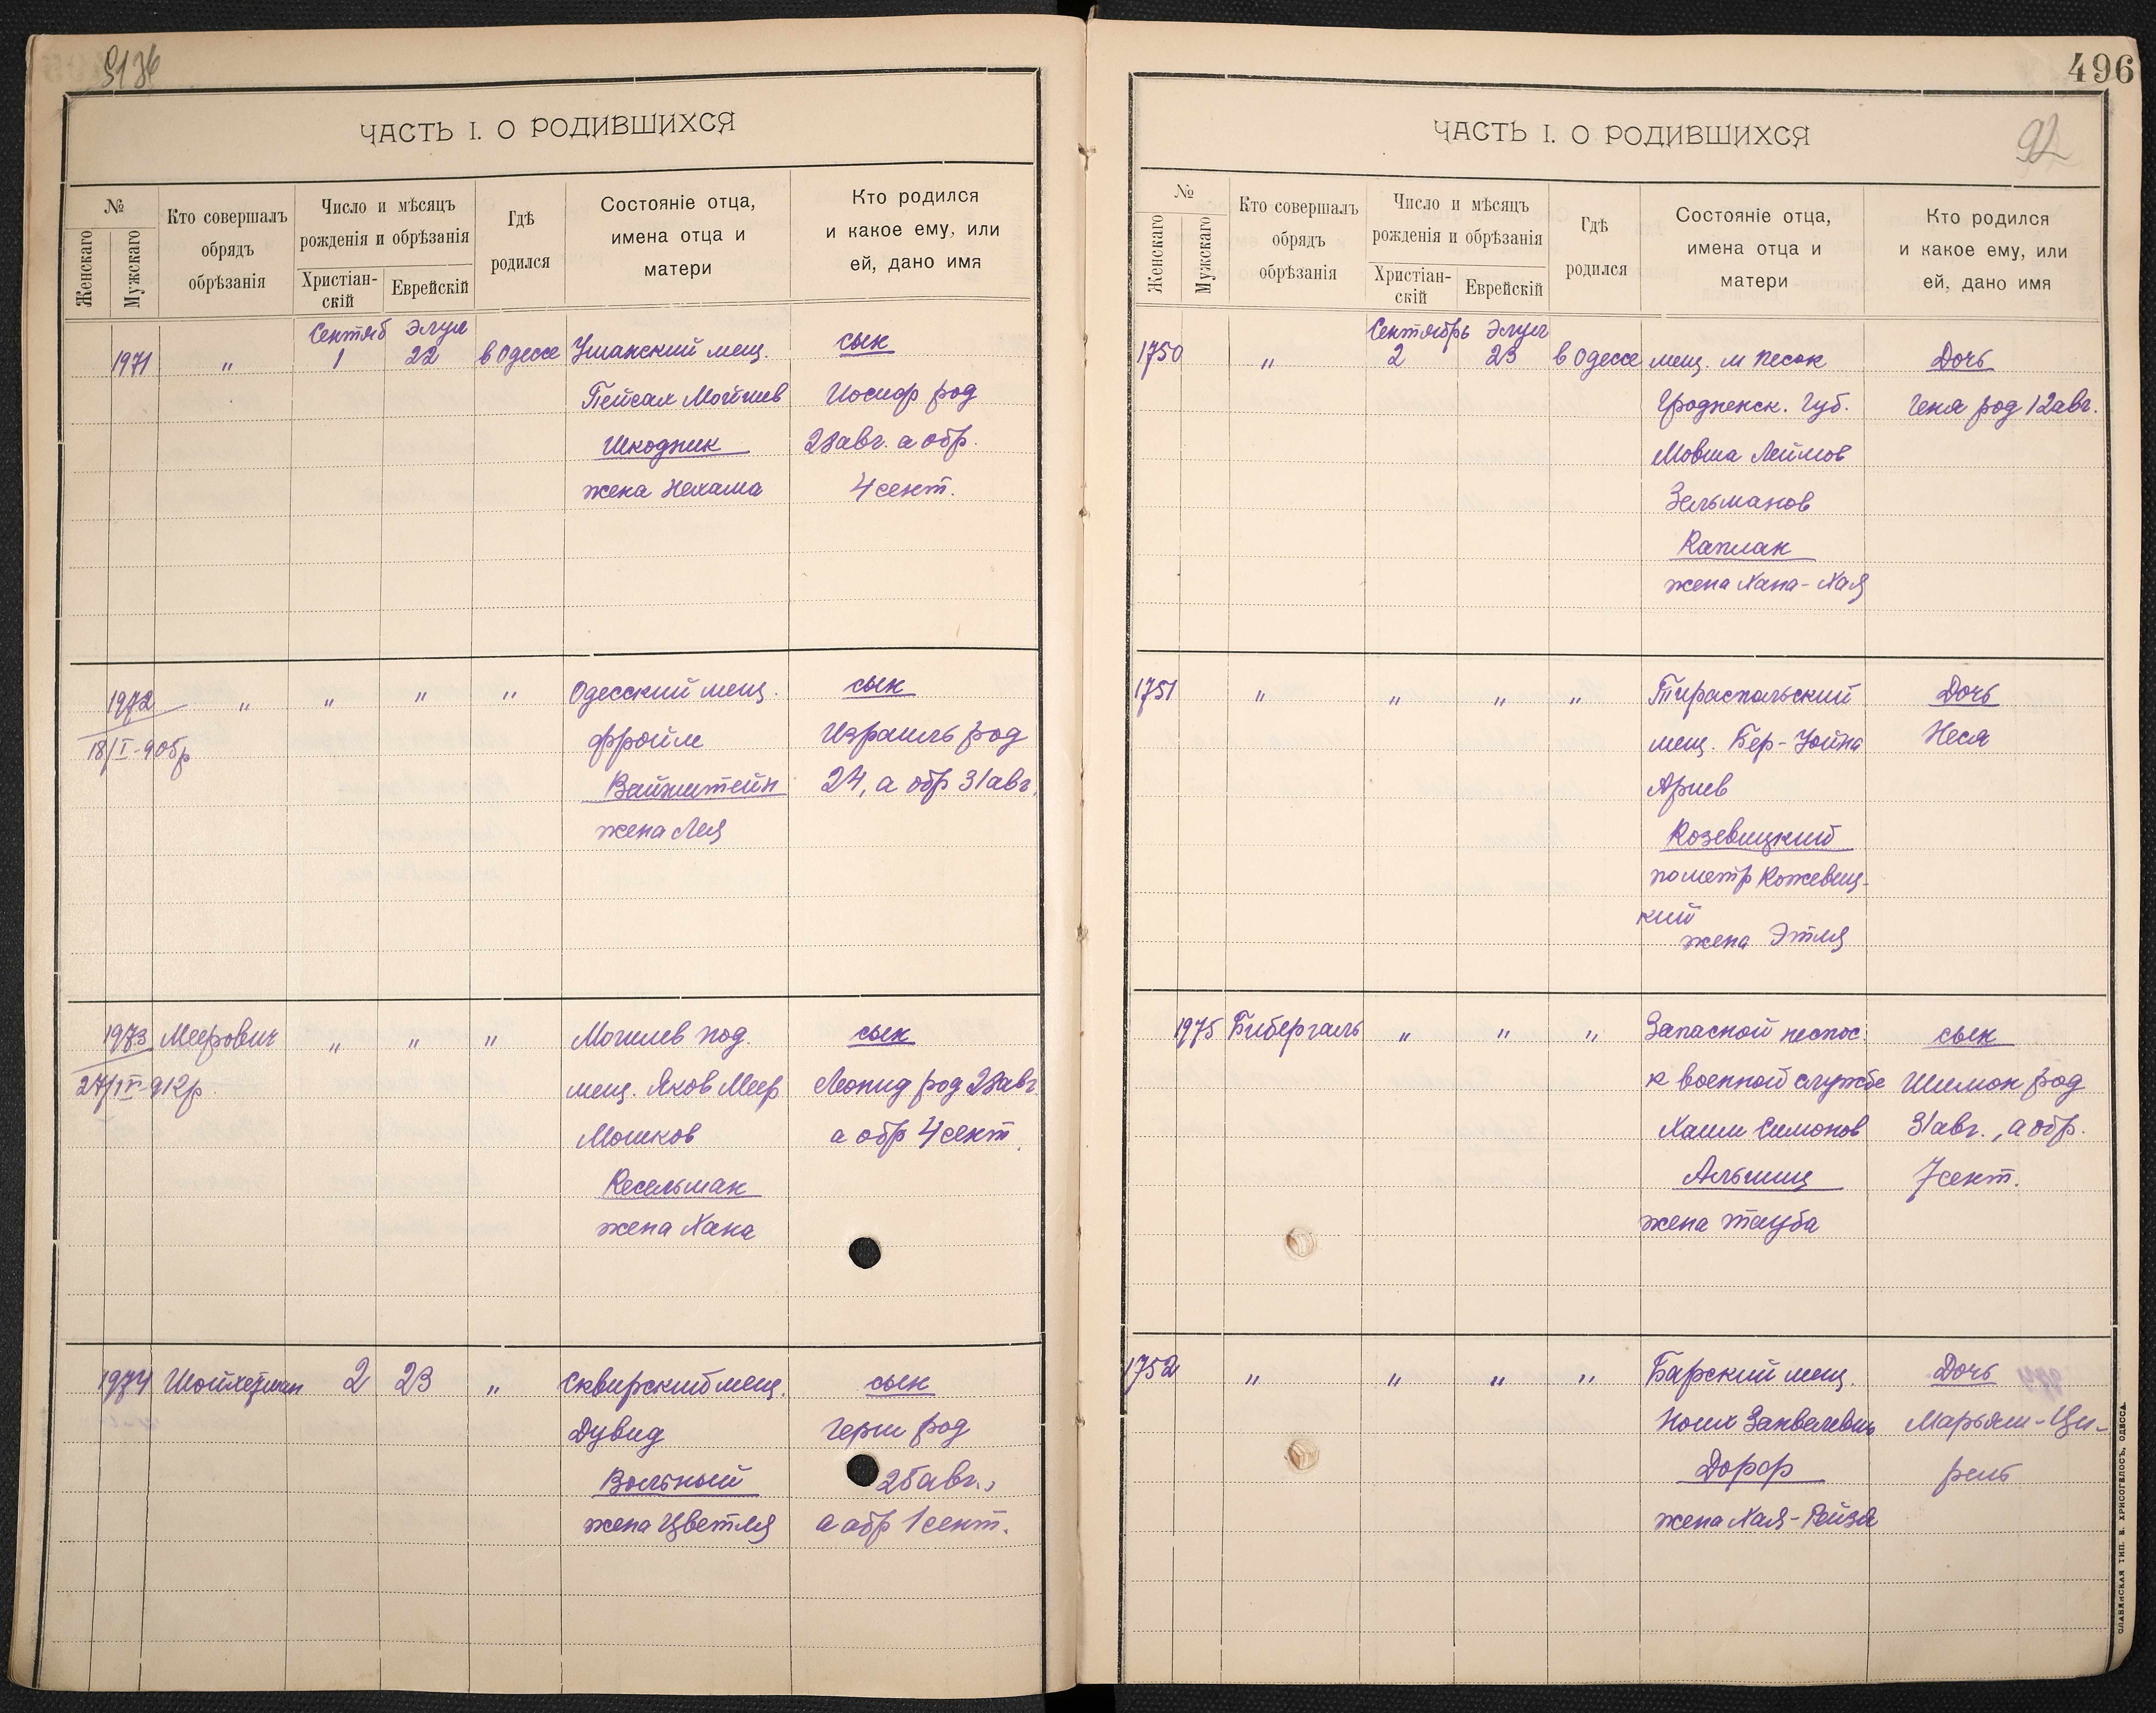 ЧАСТЬ I. О РОДИВШИХСЯ
№
Женскаго
Мужскаго
Кто совершалъ
обрядъ
обрѣзанія
Число и мѣсяцъ
рожденія и обрѣзанія
Христіан-
скій
Еврейскій
Гдѣ
родился
Состояніе отца,
имена отца и
матери
Кто родился
и какое ему, или
ей, дано имя
Сентяб Элул
1971 " 1 22 в Одессе Уманский мещ. сын
Пейсах Мойшев Иосиф род
Шкодник 28 авг. а обр.
жена Нехама 4 сент.
1972 " " " " Одесский мещ. сын
18/I-90бр
Фройм Израиль род
Вайнштейн 24, а обр 31 авг.
жена Лея
1973 Меерович " " " Могилев под. сын
мещ. Яков Меер Леонид род 28 авг.
Мошков а обр 4 сент.
Кесельман
жена Хана
1974 Шойхетман 2 23 " Сквирский мещ. сын
Дувид Герш род
Вольный 25 авг.,
жена Цветля а обр 1 сент.
496
92
ЧАСТЬ I. О РОДИВШИХСЯ
№
Женскаго
Мужскаго
Кто совершалъ
обрядъ
обрѣзанія
Число и мѣсяцъ
рожденія и обрѣзанія
Христіан-
скій
Еврейскій
Гдѣ
родился
Состояніе отца,
имена отца и
матери
Кто родился
и какое ему, или
ей, дано имя
Сентябрь Элул
1750 " 2 23 в Одессе мещ. м Песок Дочь
Гродненск. Губ. Геня род 12 авг.
Мовша Леймов
Зельманов
Каплан
жена Хана-Хая
1751 " " " " Тираспольский Дочь
мещ. Бер-Уойна Неся
Ариев
Козевицкий
по метр Кожевиц-
кий
жена Этля
1975 Бибергаль " " " Запасной неспос. сын
к военной службе Шимон род
Хаим Симонов 31 авг., а обр.
Альшиц 7 сент.
жена Тауба
1752 " " " " Барский мещ. Дочь
Ноих Марьям-Ци-
Дорф рель
жена Хая-Ройза
СЛАВЯНСКАЯ ТИП. Н. ХРИСОГЕЛОСЪ, ОДЕССА.